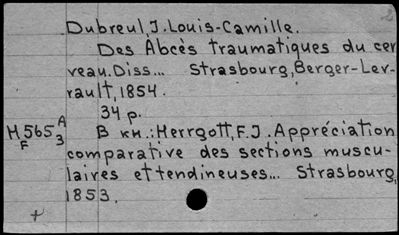 Dubreul, J. Louis-Camille.
Des Abcès traumatiques du cer
veau. Diss... Strasbourg, Berger-Lev-
rault, 1854.
34 p.
M 565 A
F 3
В кн.: Herrgott, F.J. Appréciation
comparative des sections muscu-
laires et tendineuses... Strasbourg,
1853.